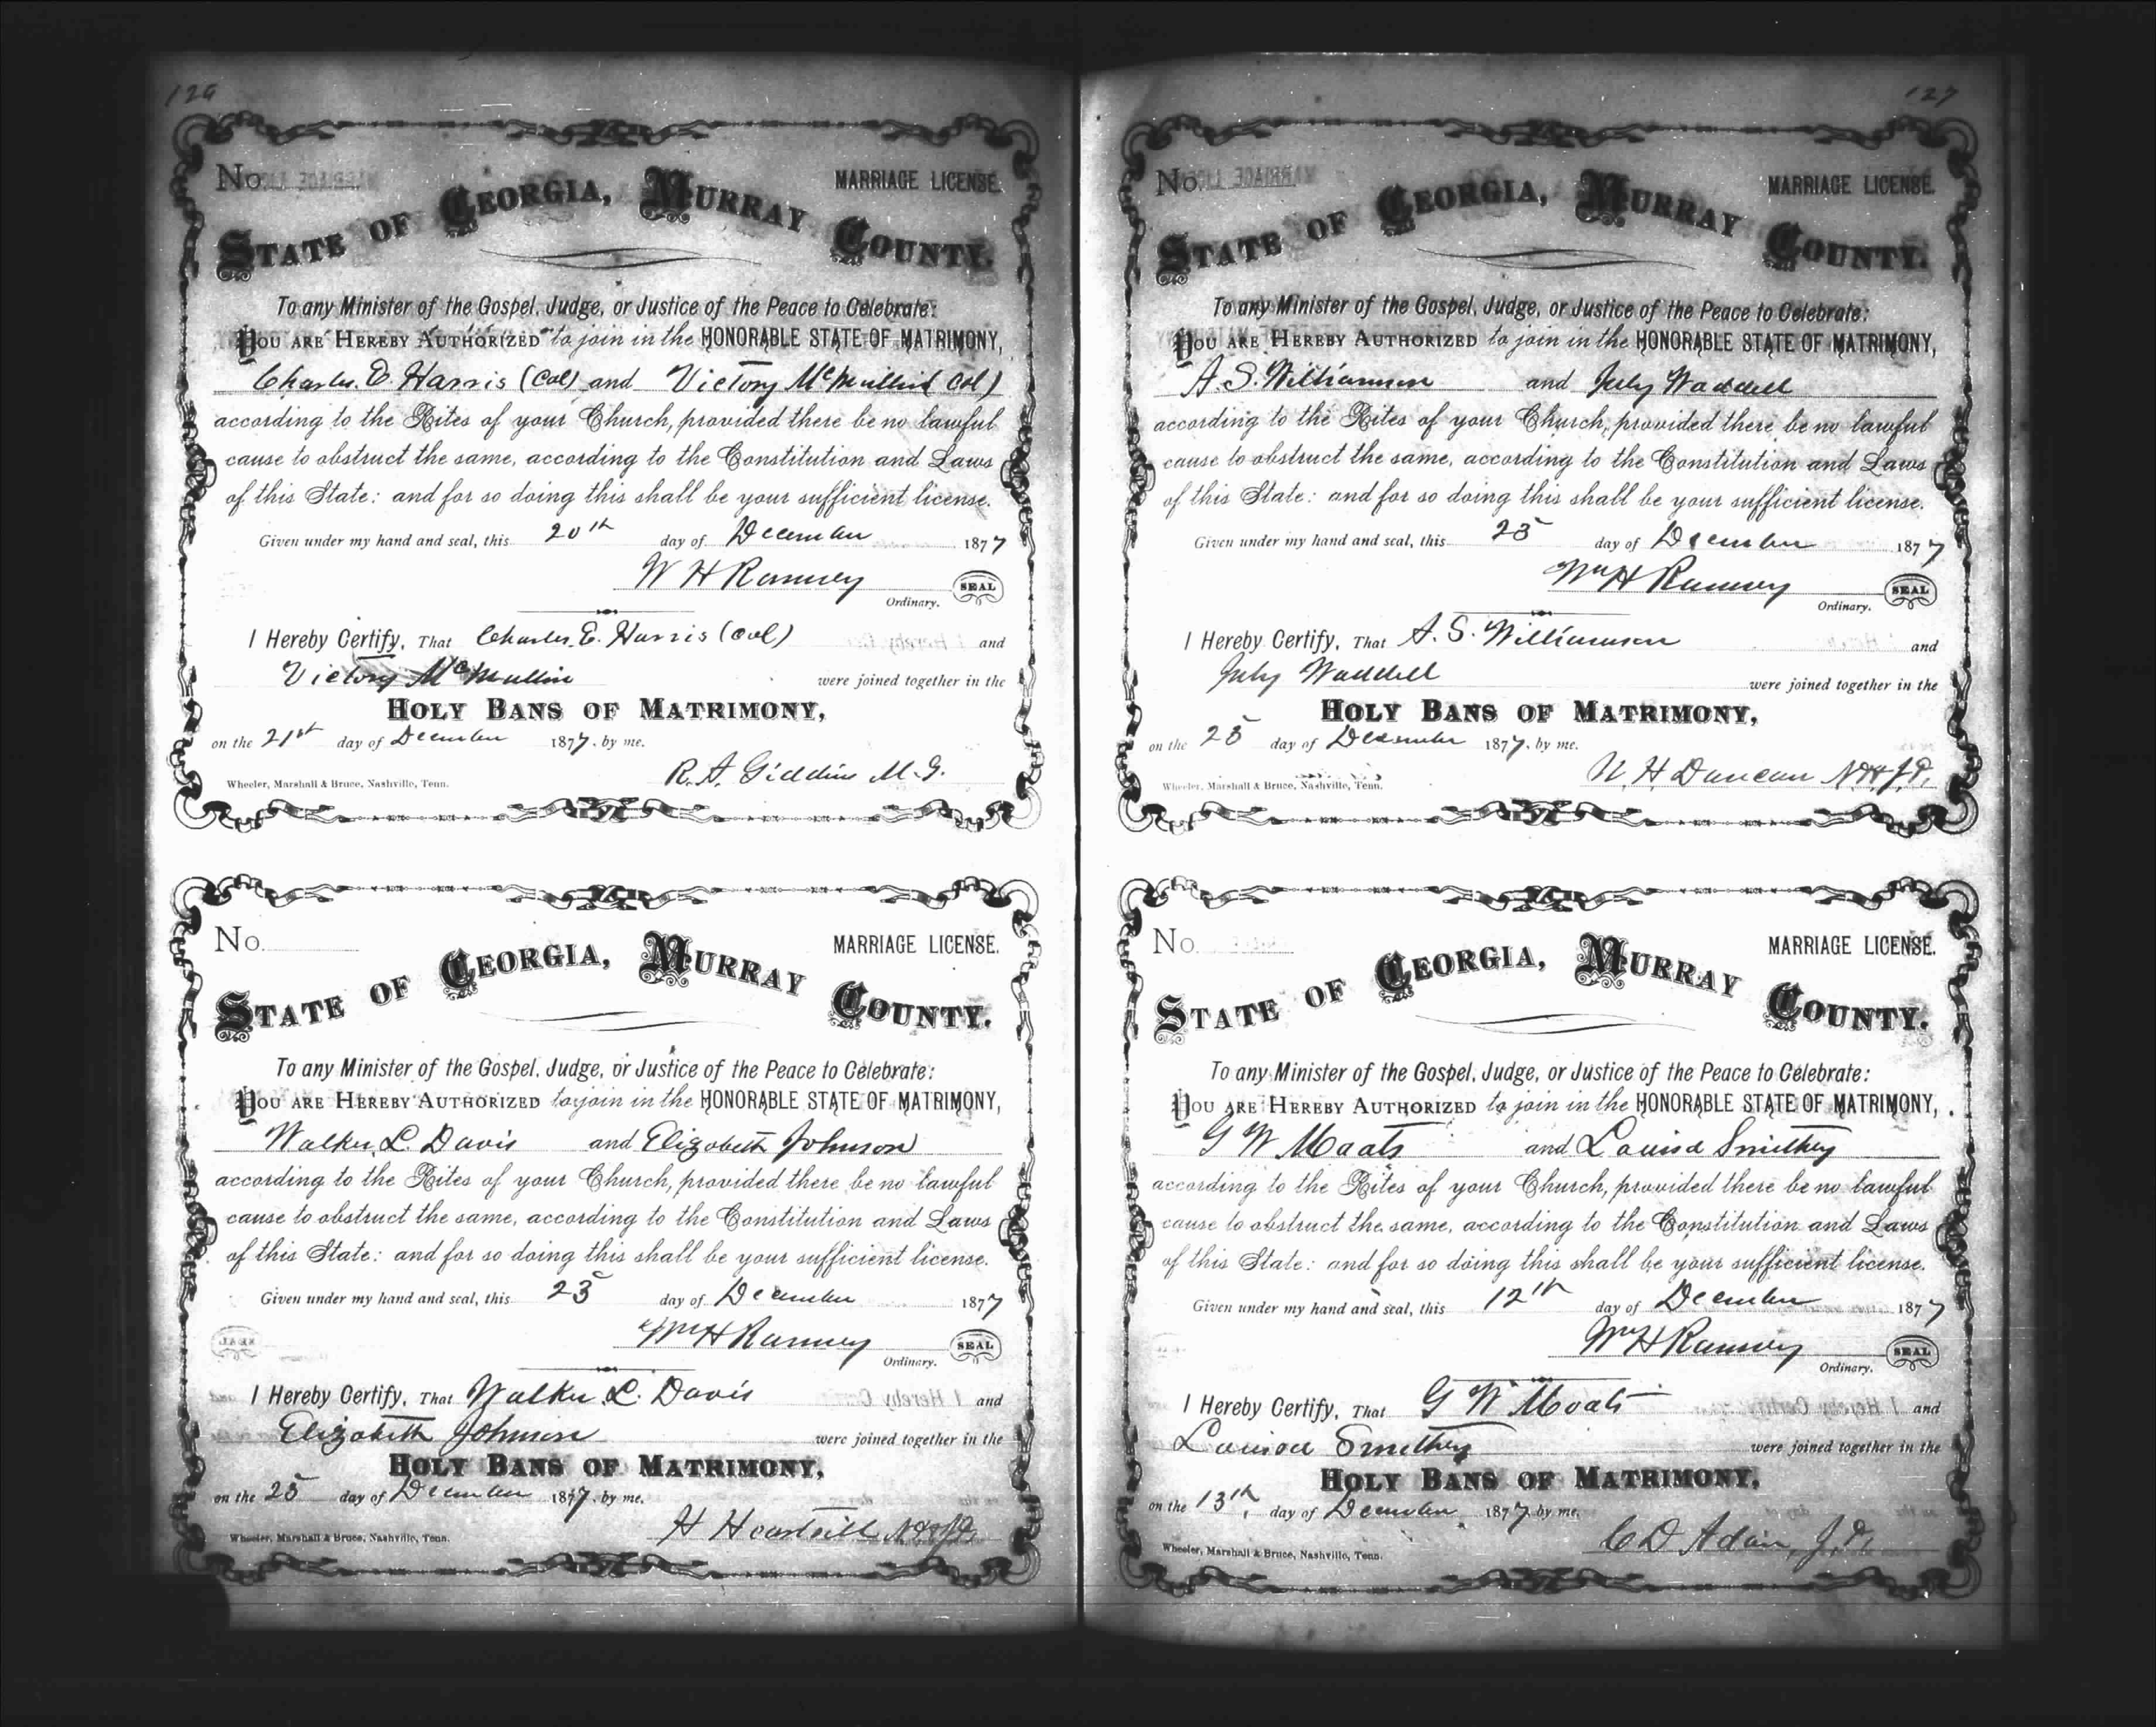 126
No. MARRIAGE LICENSE.
STATE OF GEORGIA, MURRAY COUNTY.
To any Minister of the Gospel, Judge, or Justice of the Peace to Celebrate:
YOU ARE HEREBY AUTHORIZED to join in the HONORABLE STATE OF MATRIMONY,
Charles. E. Harris (Col) and Victory McMullin (Col)
according to the Rites of your Church, provided there be no lawful
cause to obstruct the same, according to the Constitution and Laws
of this State: and for so doing this shall be your sufficient license.
Given under my hand and seal, this 20th day of December 1877
W H Ramsey SEAL
Ordinary.
I Hereby Certify, That Charles. E. Harris (Col) and
Victory McMullin were joined together in the
HOLY BANS OF MATRIMONY,
on the 21st day of December 1877. by me.
R. A. Giddins M. G.
Wheeler, Marshall & Bruce, Nashville, Tenn.
No. MARRIAGE LICENSE.
STATE OF GEORGIA, MURRAY COUNTY.
To any Minister of the Gospel, Judge, or Justice of the Peace to Celebrate:
YOU ARE HEREBY AUTHORIZED to join in the HONORABLE STATE OF MATRIMONY,
Walker L. Davis and Elizabeth Johnson
according to the Rites of your Church, provided there be no lawful
cause to obstruct the same, according to the Constitution and Laws
of this State: and for so doing this shall be your sufficient license.
Given under my hand and seal, this 23 day of December 1877
Wm H Ramsey SEAL
Ordinary.
I Hereby Certify, That Walker L. Davis and
Elizabeth Johnson were joined together in the
HOLY BANS OF MATRIMONY,
on the 25 day of December 1877. by me.
H Heartsill
Wheeler, Marshall & Bruce, Nashville, Tenn.
127
No. MARRIAGE LICENSE.
STATE OF GEORGIA, MURRAY COUNTY.
To any Minister of the Gospel, Judge, or Justice of the Peace to Celebrate:
YOU ARE HEREBY AUTHORIZED to join in the HONORABLE STATE OF MATRIMONY,
A. S. Williamson and July Waddell
according to the Rites of your Church, provided there be no lawful
cause to obstruct the same, according to the Constitution and Laws
of this State: and for so doing this shall be your sufficient license.
Given under my hand and seal, this 25 day of December 1877
Wm H Ramsey SEAL
Ordinary.
I Hereby Certify, That A. S. Williamson and
July Waddell were joined together in the
HOLY BANS OF MATRIMONY,
on the 25 day of December 1877. by me.
H. Duncan
Wheeler, Marshall & Bruce, Nashville, Tenn.
No. MARRIAGE LICENSE.
STATE OF GEORGIA, MURRAY COUNTY.
To any Minister of the Gospel, Judge, or Justice of the Peace to Celebrate:
YOU ARE HEREBY AUTHORIZED to join in the HONORABLE STATE OF MATRIMONY,
G W Moats and Louisa Smithey
according to the Rites of your Church, provided there be no lawful
cause to obstruct the same, according to the Constitution and Laws
of this State: and for so doing this shall be your sufficient license.
Given under my hand and seal, this 12th day of December 1877
Wm H Ramsey SEAL
Ordinary.
I Hereby Certify, That G W Moats and
Louisa Smithey were joined together in the
HOLY BANS OF MATRIMONY,
on the 13th, day of December 1877. by me,
C D Adair, J. P.
Wheeler, Marshall & Bruce, Nashville, Tenn.